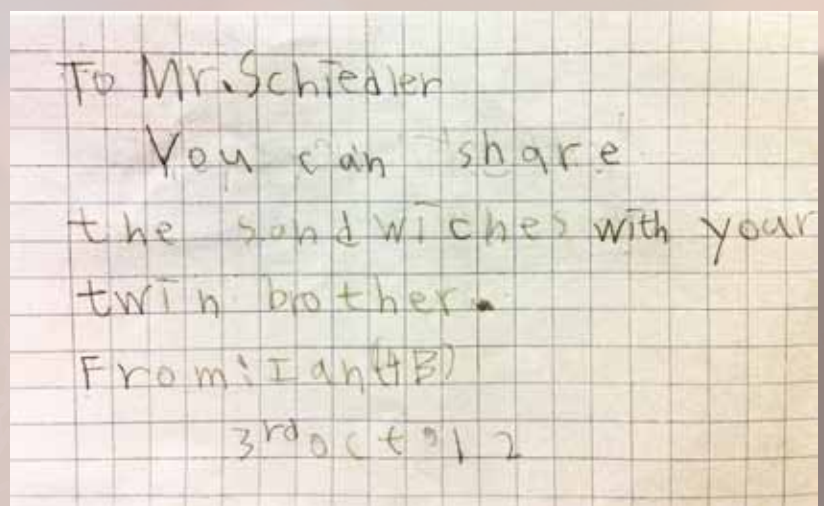 To Mr. Schiedler
You can share
the sandwiches with your
twin brother.
From: Ian (4B)
3rd oct '12